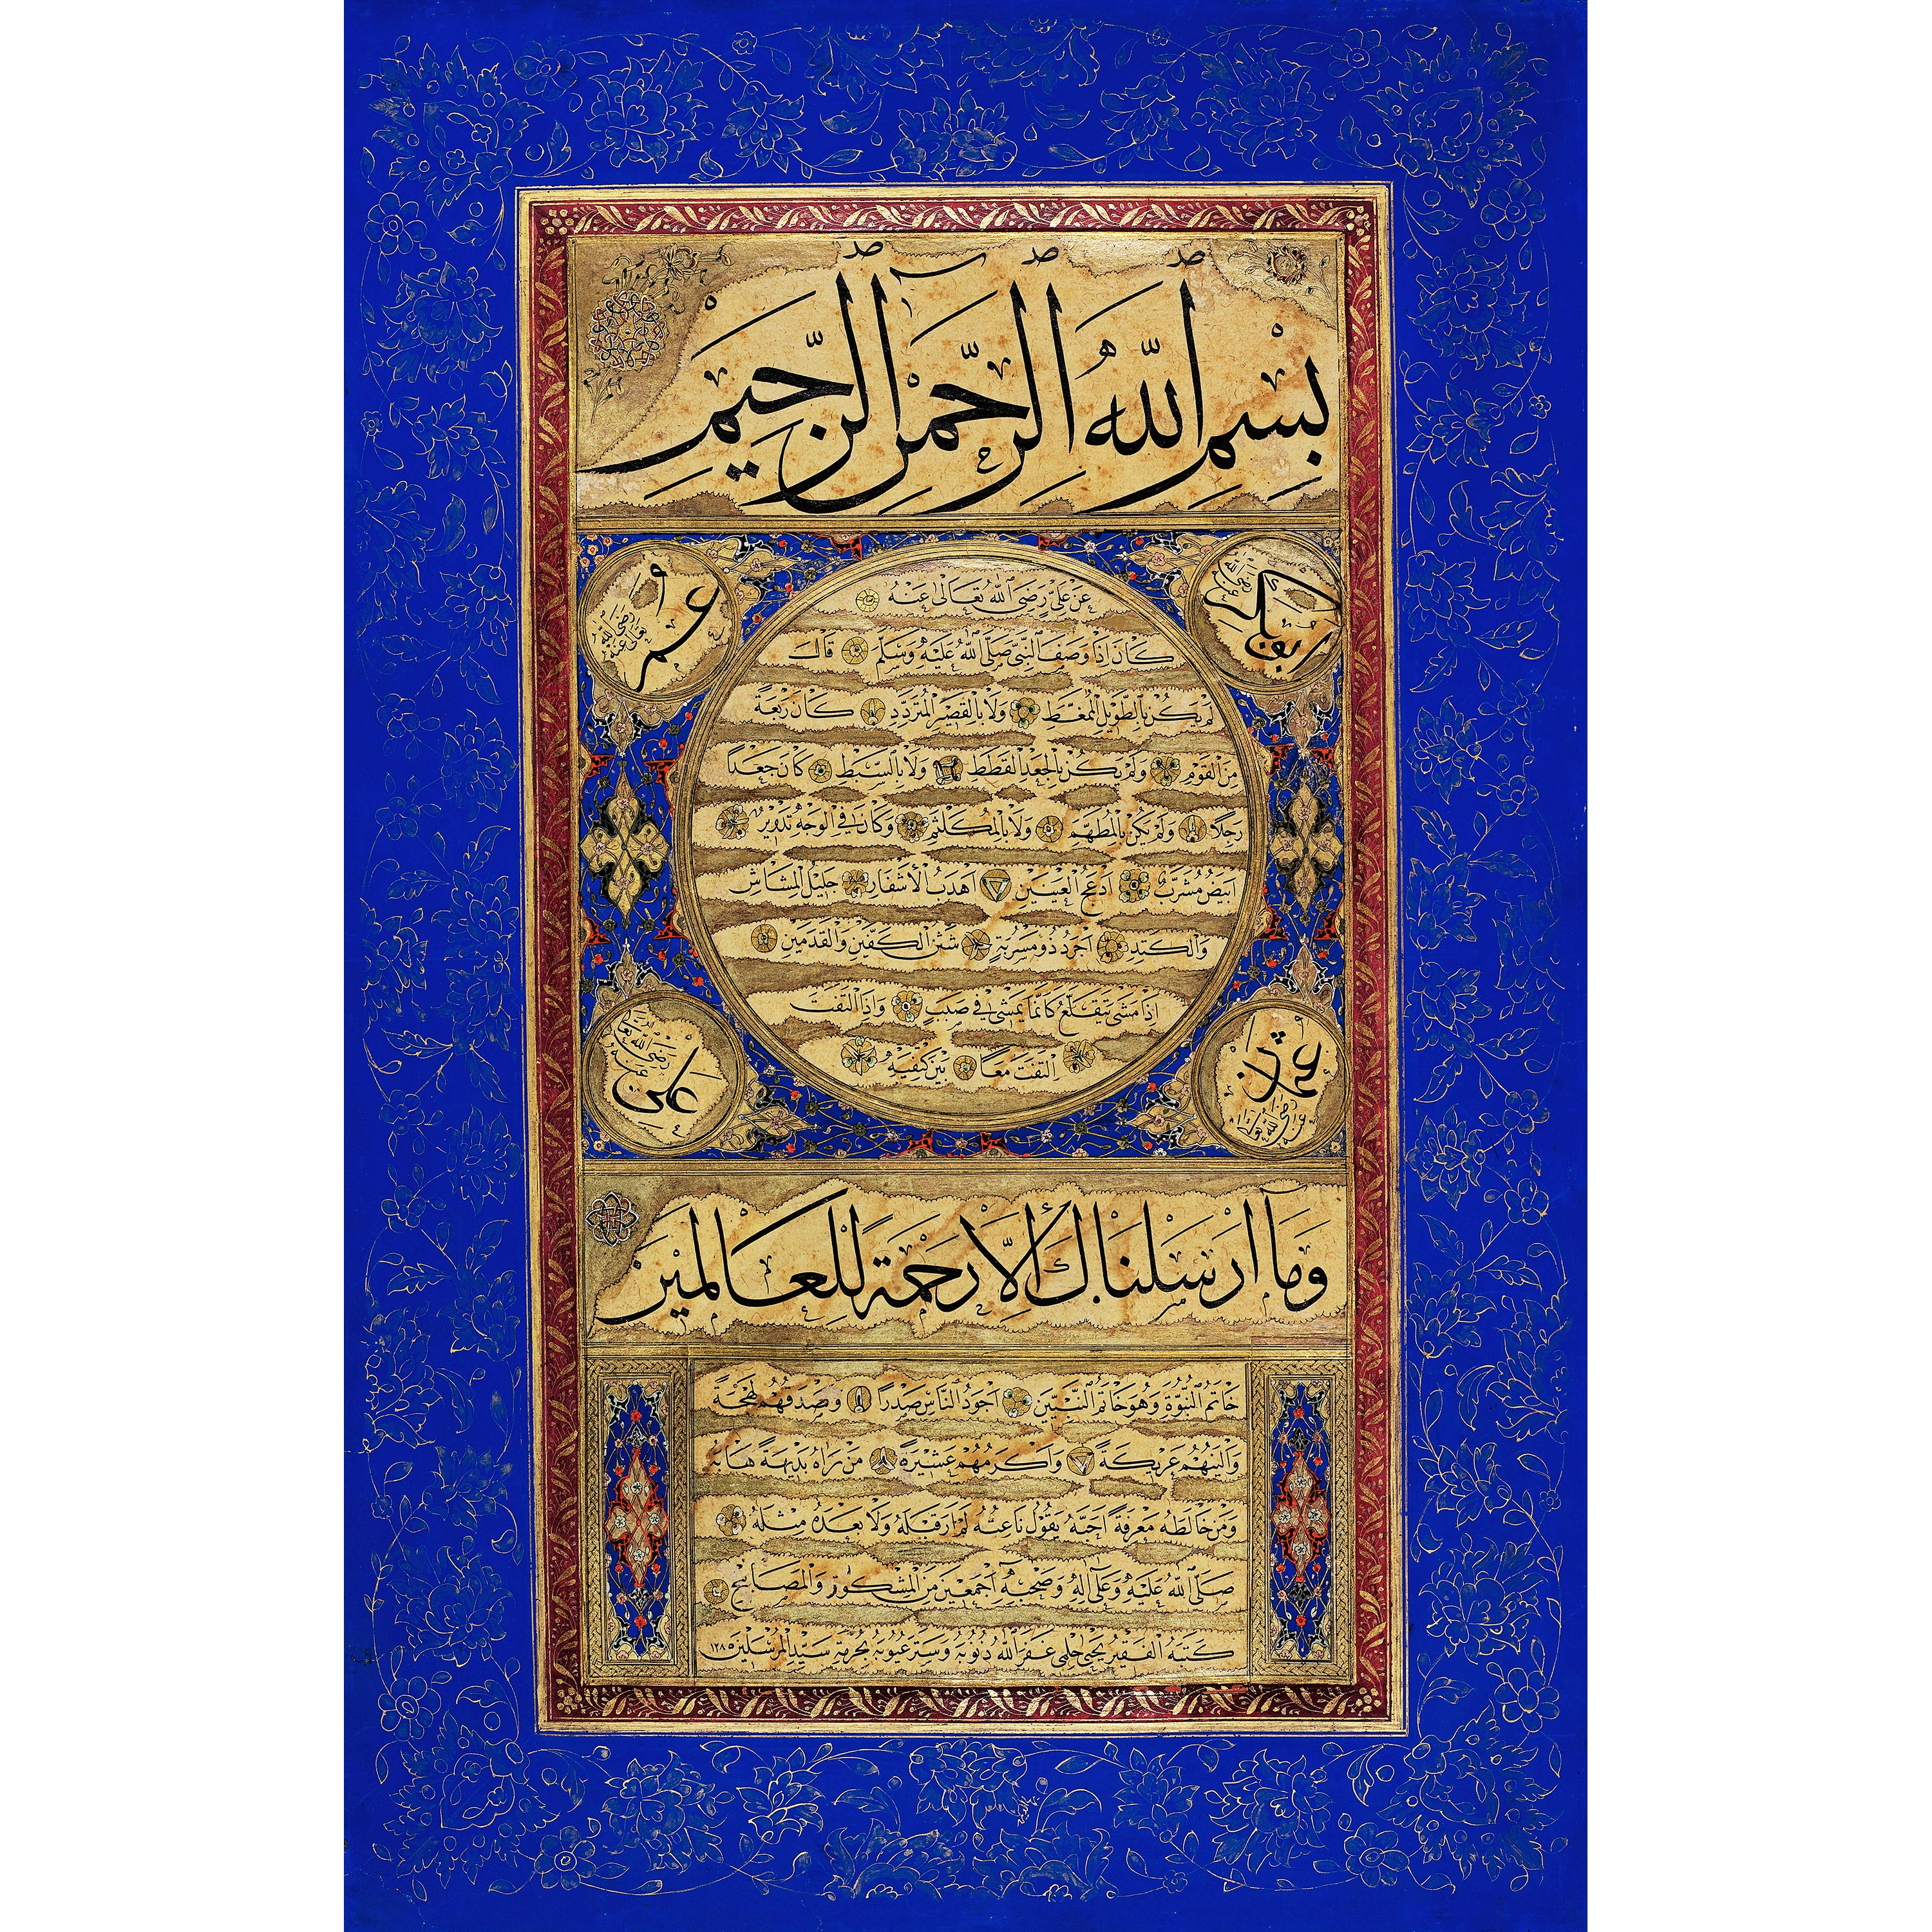 بِسْمِ اللّٰهِ الرَّحْمٰنِ الرَّحِيمِ
ابو بكر رضى الله تعالى عنه
عمر رضى الله تعالى عنه
عَنْ عَلِيٍّ رَضِىَ اللّٰهُ تَعَالٰى عَنْهُ
كَانَ اِذَا وَصَفَ النَّبِىَّ صَلَّى اللّٰهُ عَلَيْهِ وَسَلَّمَ قَالَ
لَمْ يَكُنْ بِالطَّوِيلِ الْمُمَغَّطِ وَلَا بِالْقَصِيرِ الْمُتَرَدِّدِ كَانَ رَبْعَةً
مِنَ الْقَوْمِ وَلَمْ يَكُنْ بِالْجَعْدِ الْقَطَطِ وَلَا بِالسَّبِطِ كَانَ جَعْدًا
رَجِلًا وَلَمْ يَكُنْ بِالْمُطَهَّمِ وَلَا بِالْمُكَلْثَمِ وَكَانَ فِى الْوَجْهِ تَدْوِيرٌ
اَبْيَضُ مُشْرَبٌ اَدْعَجُ الْعَيْنَيْنِ اَهْدَبُ الْأَشْفَارِ جَلِيلُ الْمُشَاشِ
وَالْكَتِدِ اَجْرَدُ ذُو مَسْرُبَةٍ شَثْنُ الْكَفَّيْنِ وَالْقَدَمَيْنِ
اِذَا مَشٰى يَتَقَلَّعُ كَاَنَّمَا يَمْشِى فِى صَبَبٍ وَاِذَا الْتَفَتَ
الْتَفَتَ مَعًا بَيْنَ كَتِفَيْهِ
عثمان رضى الله تعالى عنه
على رضى الله تعالى عنه
وَمَا اَرْسَلْنَاكَ اِلَّا رَحْمَةً لِلْعَالَمِينَ
خَاتَمُ النُّبُوَّةِ وَهُوَ خَاتَمُ النَّبِيِّينَ اَجْوَدُ النَّاسِ صَدْرًا وَاَصْدَقُهُمْ لَهْجَةً
وَاَلْيَنُهُمْ عَرِيكَةً وَاَكْرَمُهُمْ عَشِيرَةً مَنْ رَاٰهُ بَدِيهَةً هَابَهُ
وَمَنْ خَالَطَهُ مَعْرِفَةً اَحَبَّهُ يَقُولُ نَاعِتُهُ لَمْ اَرَ قَبْلَهُ وَلَا بَعْدَهُ مِثْلَهُ
صَلَّى اللّٰهُ عَلَيْهِ وَعَلٰى اٰلِهِ وَصَحْبِهِ اَجْمَعِينَ مِنَ الْمِشْكٰوةِ وَالْمَصَابِيحِ
كَتَبَهُ الْفَقِيرُ يَحْيٰى حِلْمِى غَفَرَ اللّٰهُ ذُنُوبَهُ وَسَتَرَ عُيُوبَهُ بِحُرْمَةِ سَيِّدِ الْمُرْسَلِينَ